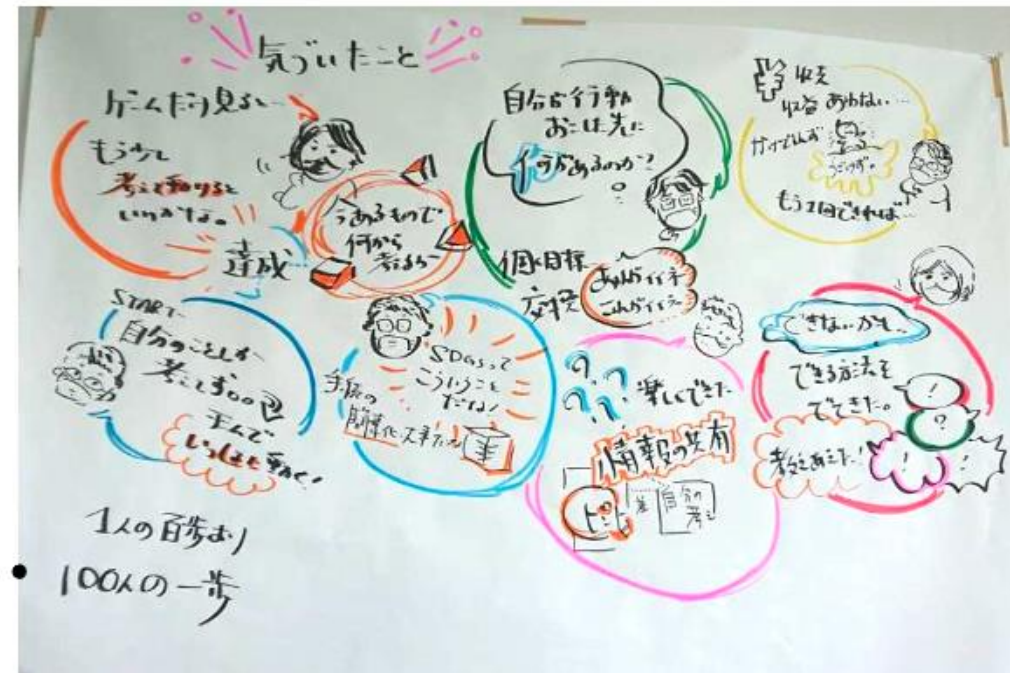 気づいたこと
ゲームだけ見ると…
もう少し
考えて動けると
いいかな。
達成
今あるもので
何から
考えるか
自分が行動
おこした先に
何があるのか?
個々目標
交換
あれがイイネ
これがイイネ
収支
収益あわない…
うごけず。
もう1回できれば…
START
自分のことしか
考えてず
読んで
いっしょに動く!
SDGsって
こういうこと
だな!
手段の
簡単化
???
楽しくできた
情報の共有
ヒント
自分の
考え
できないかも…
できる方法を
でてきた。
教えあえた!
!
?
!
!
1人の百歩より
100人の一歩